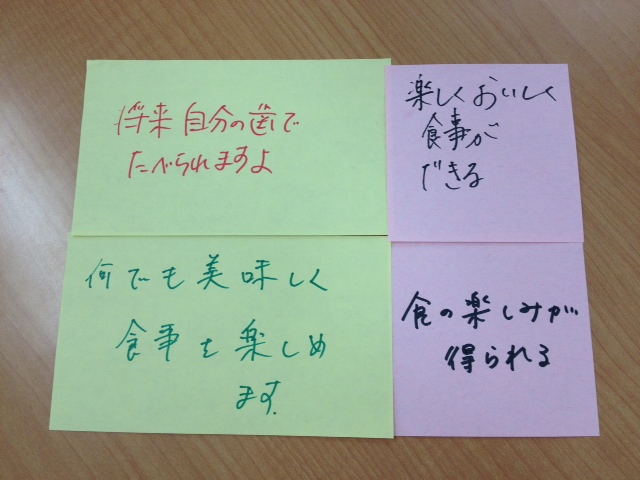 将来自分の歯で
たべられますよ
楽しくおいしく
食事が
できる
何でも美味しく
食事を楽しめ
ます.
食の楽しみが
得られる